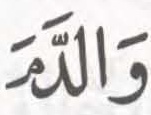 وَالدَّمَ